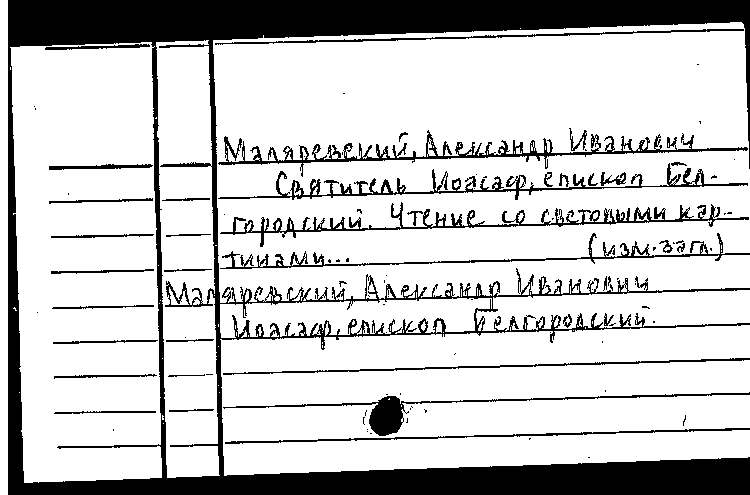 Маляревский, Александр Иванович
Святитель Иоасаф, епископ Бел-
городский. Чтение со световыми кар-
тинами... (изм. загл.)
Маляревский, Александр Иванович
Иоасаф, епископ Белгородский.